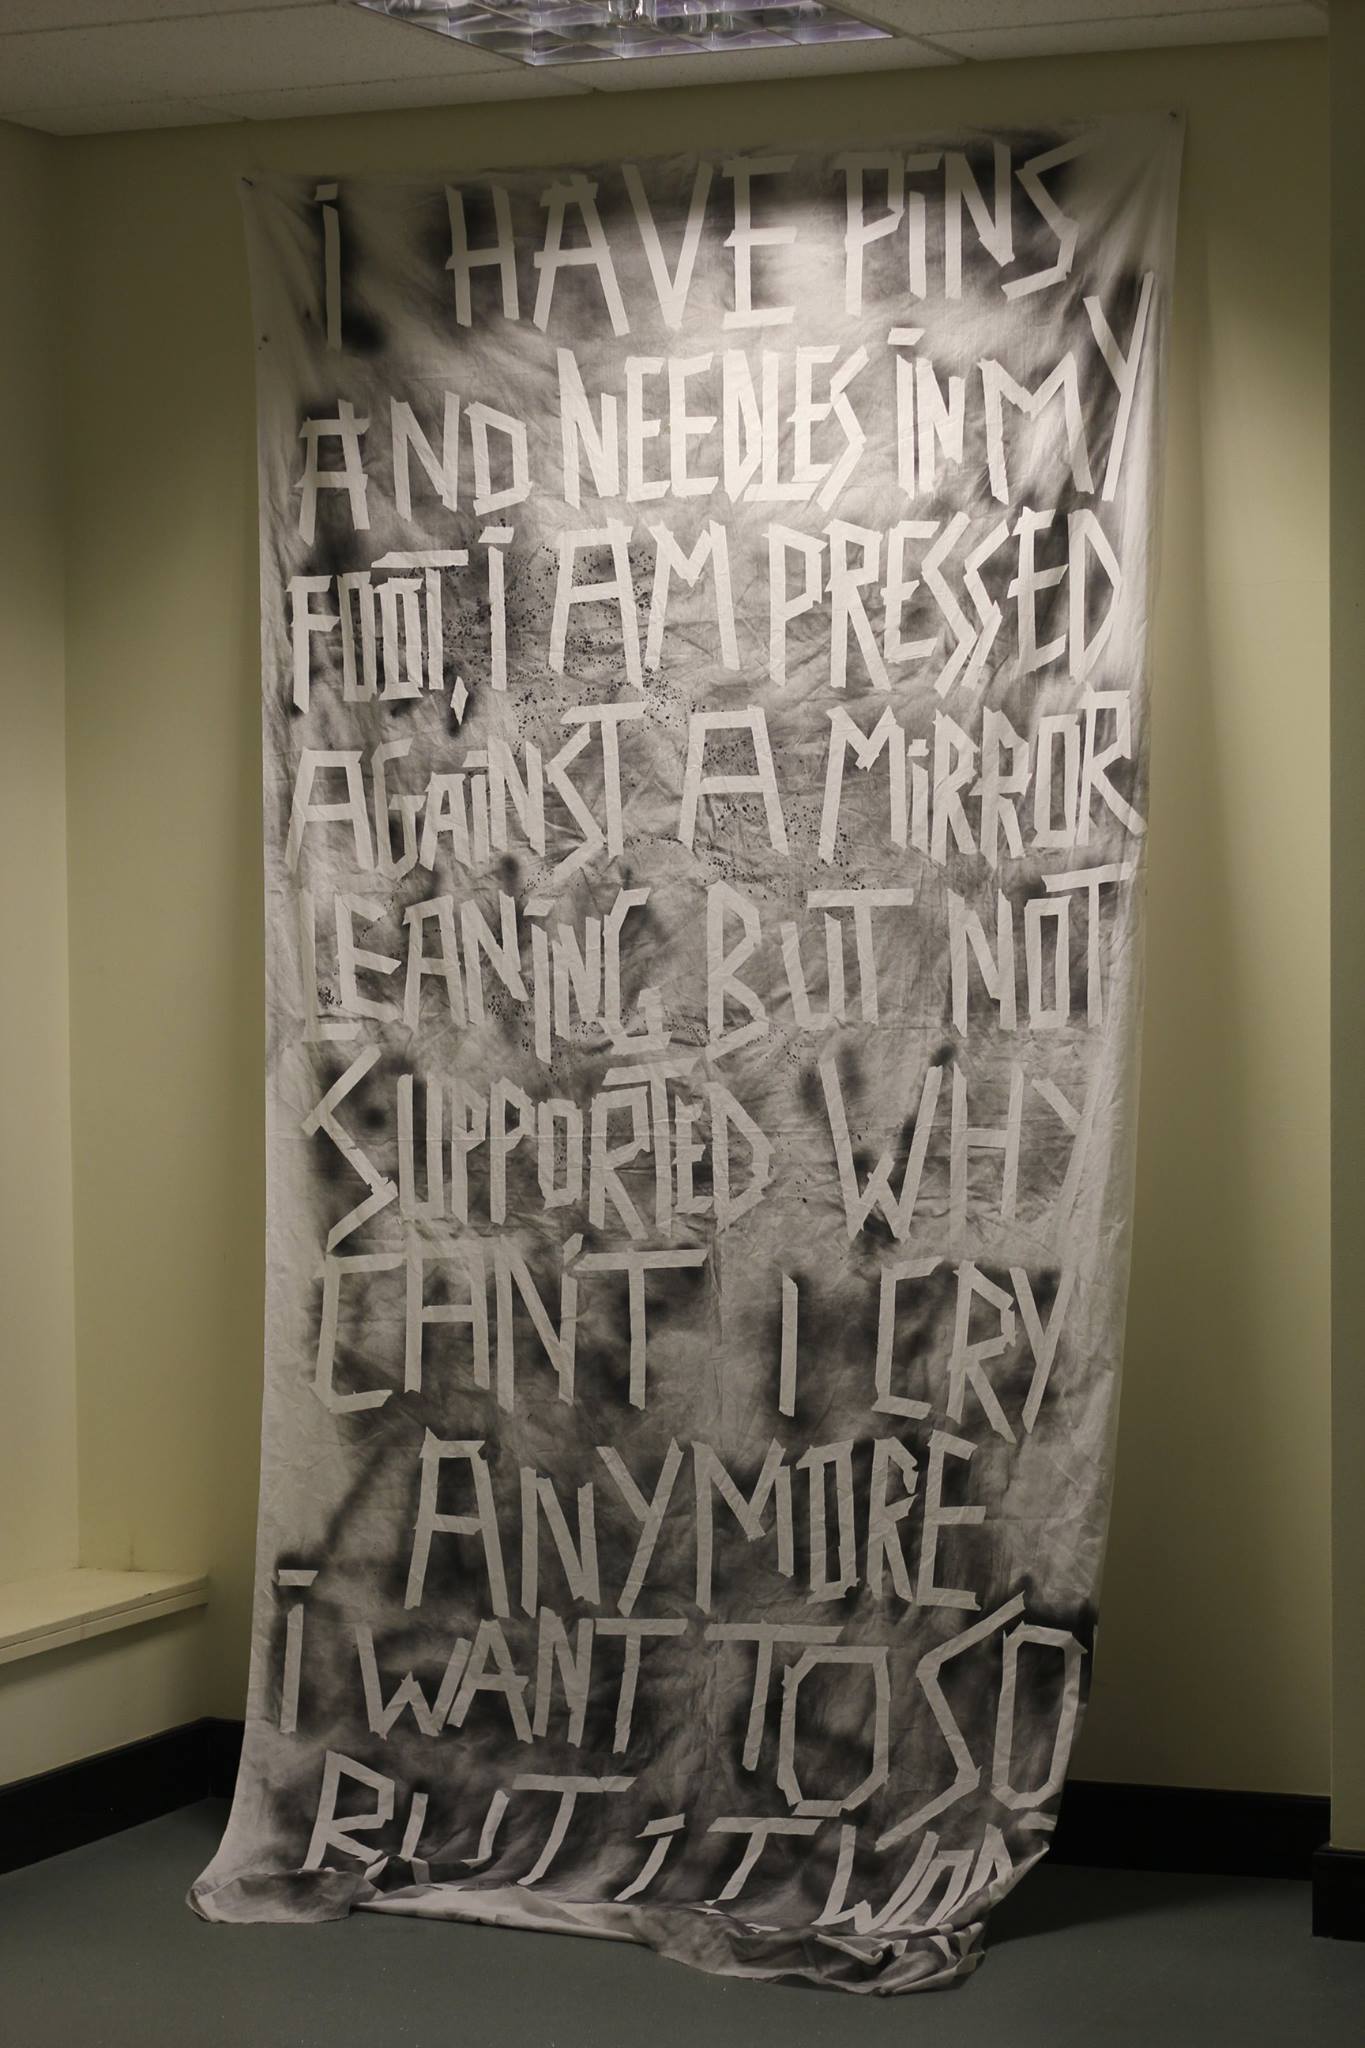 i HAVE PiNS
AND NEEDLES iN MY
FOOT, i AM PRESSED
AGAiNST A MiRROR
LEANiNG BUT NOT
SUPPORTED WHY
CAN'T I CRY
ANYMORE
i WANT TO SO
BUT iT